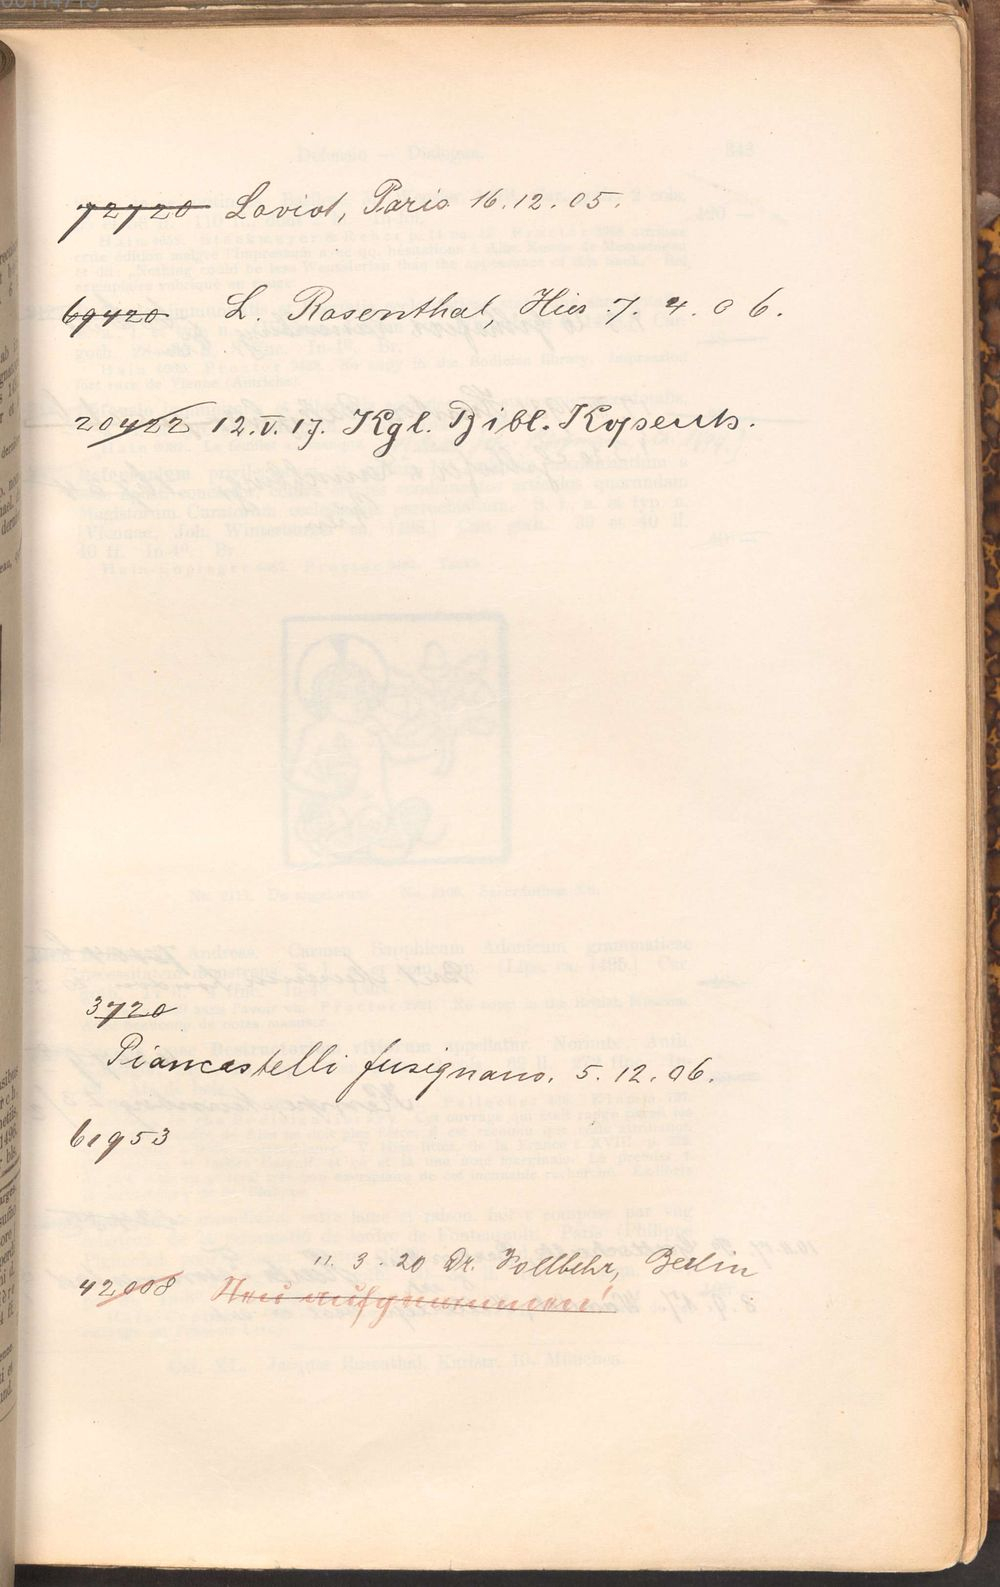 72720 Loviot, Paris 16.12.05.
69420 L. Rosenthal, Hier 7.4.06.
20422 12.V.17. Kgl. Bibl.
3720
Piancastelli fusignano. 5.12.06.
61953
11.3.20 Dr. Vollbehr, Berlin
42008 Neu aufgenommen!